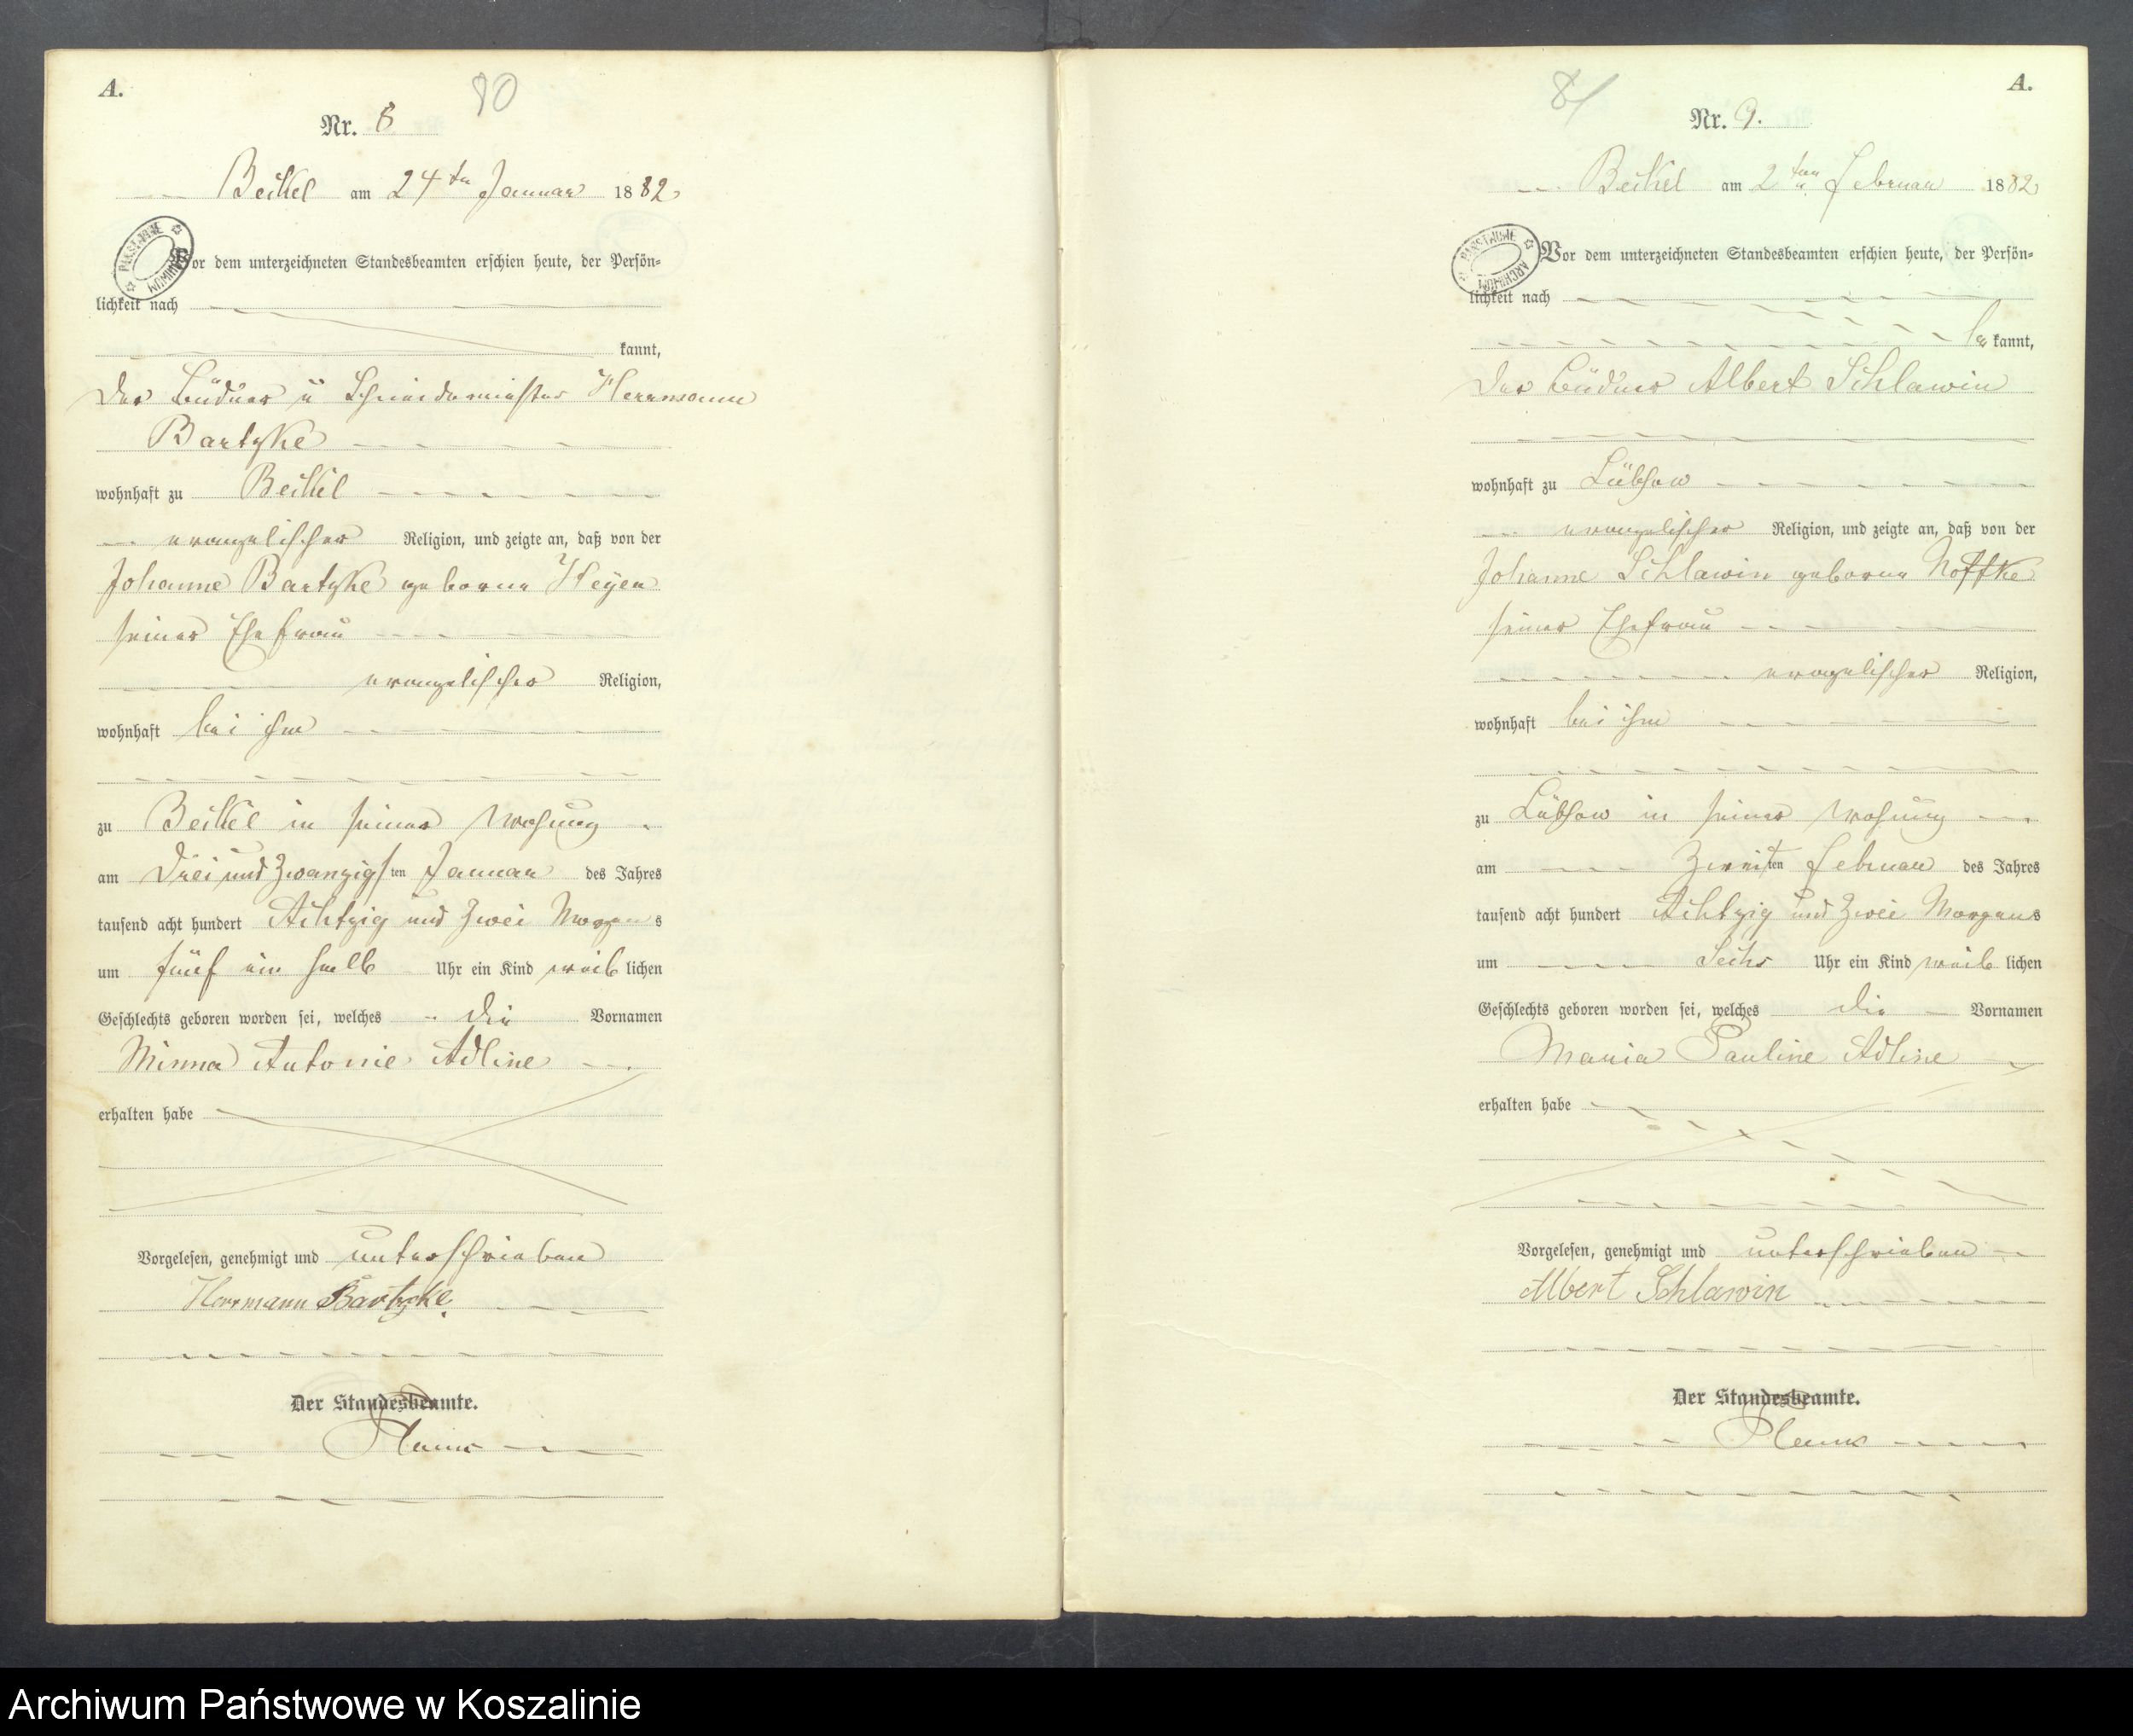 A.
80
Nr. 8
Beikel am 24ten Januar 1882
PAŃSTWOWE ARCHIWUM
Vor dem unterzeichneten Standesbeamten erschien heute, der Persön-
lichkeit nach
kannt,
der Büdner u Schneidermeister Herrmann
Bartzke
wohnhaft zu Beikel
evangelischer Religion, und zeigte an, daß von der
Johanne Bartzke geborne Heyer
seiner Ehefrau
evangelischer Religion,
wohnhaft bei ihm
zu Beikel in seiner Wohnung
am Drei und Zwanzigsten Januar des Jahres
tausend acht hundert Achtzig und Zwei Morgens
um fünf ein halb Uhr ein Kind weiblichen
Geschlechts geboren worden sei, welches die Vornamen
Minna Antonie Adline
erhalten habe
Vorgelesen, genehmigt und unterschrieben
Herrmann Bartzke.
Der Standesbeamte.
A.
81
Nr. 9.
Beikel am 2ten Februar 1882
PAŃSTWOWE ARCHIWUM
Vor dem unterzeichneten Standesbeamten erschien heute, der Persön-
lichkeit nach
be kannt,
der Büdner Albert Schlawin
wohnhaft zu Lübsow
evangelischer Religion, und zeigte an, daß von der
Johanne Schlawin geborne Noffke
seiner Ehefrau
evangelischer Religion,
wohnhaft bei ihm
zu Lübsow in seiner Wohnung
am Zweiten Februar des Jahres
tausend acht hundert Achtzig und Zwei Morgens
um Sechs Uhr ein Kind weiblichen
Geschlechts geboren worden sei, welches die Vornamen
Maria Pauline Adline
erhalten habe
Vorgelesen, genehmigt und unterschrieben
Albert Schlawin
Der Standesbeamte.
Archiwum Państwowe w Koszalinie